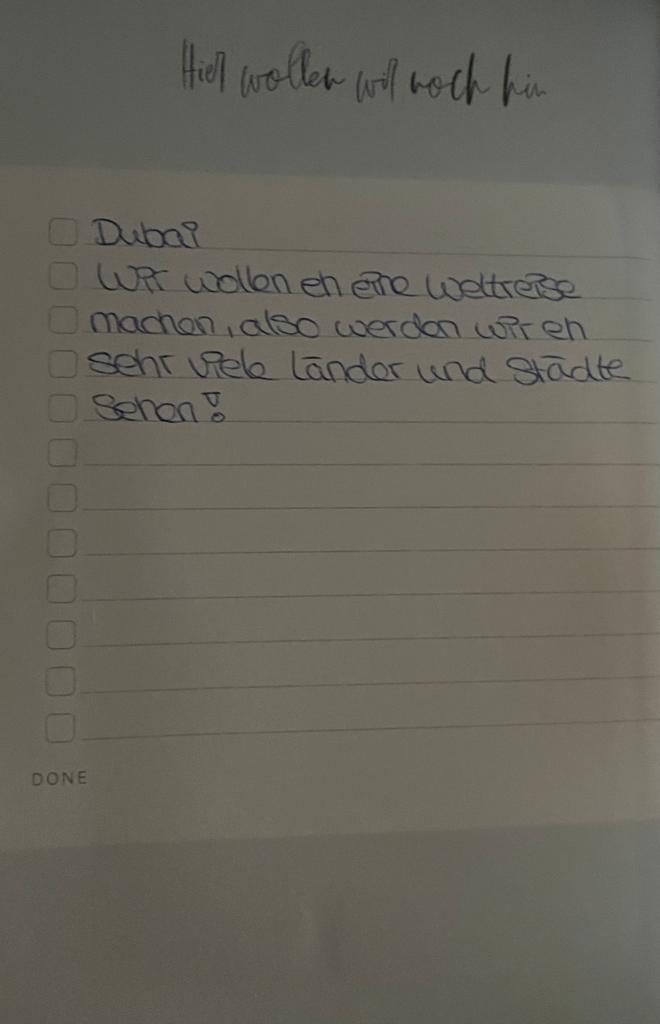 Hier wollen wir noch hin
Dubai
Wir wollen eh eine Weltreise
machen, also werden wir eh
sehr viele Länder und Städte
sehen!
DONE